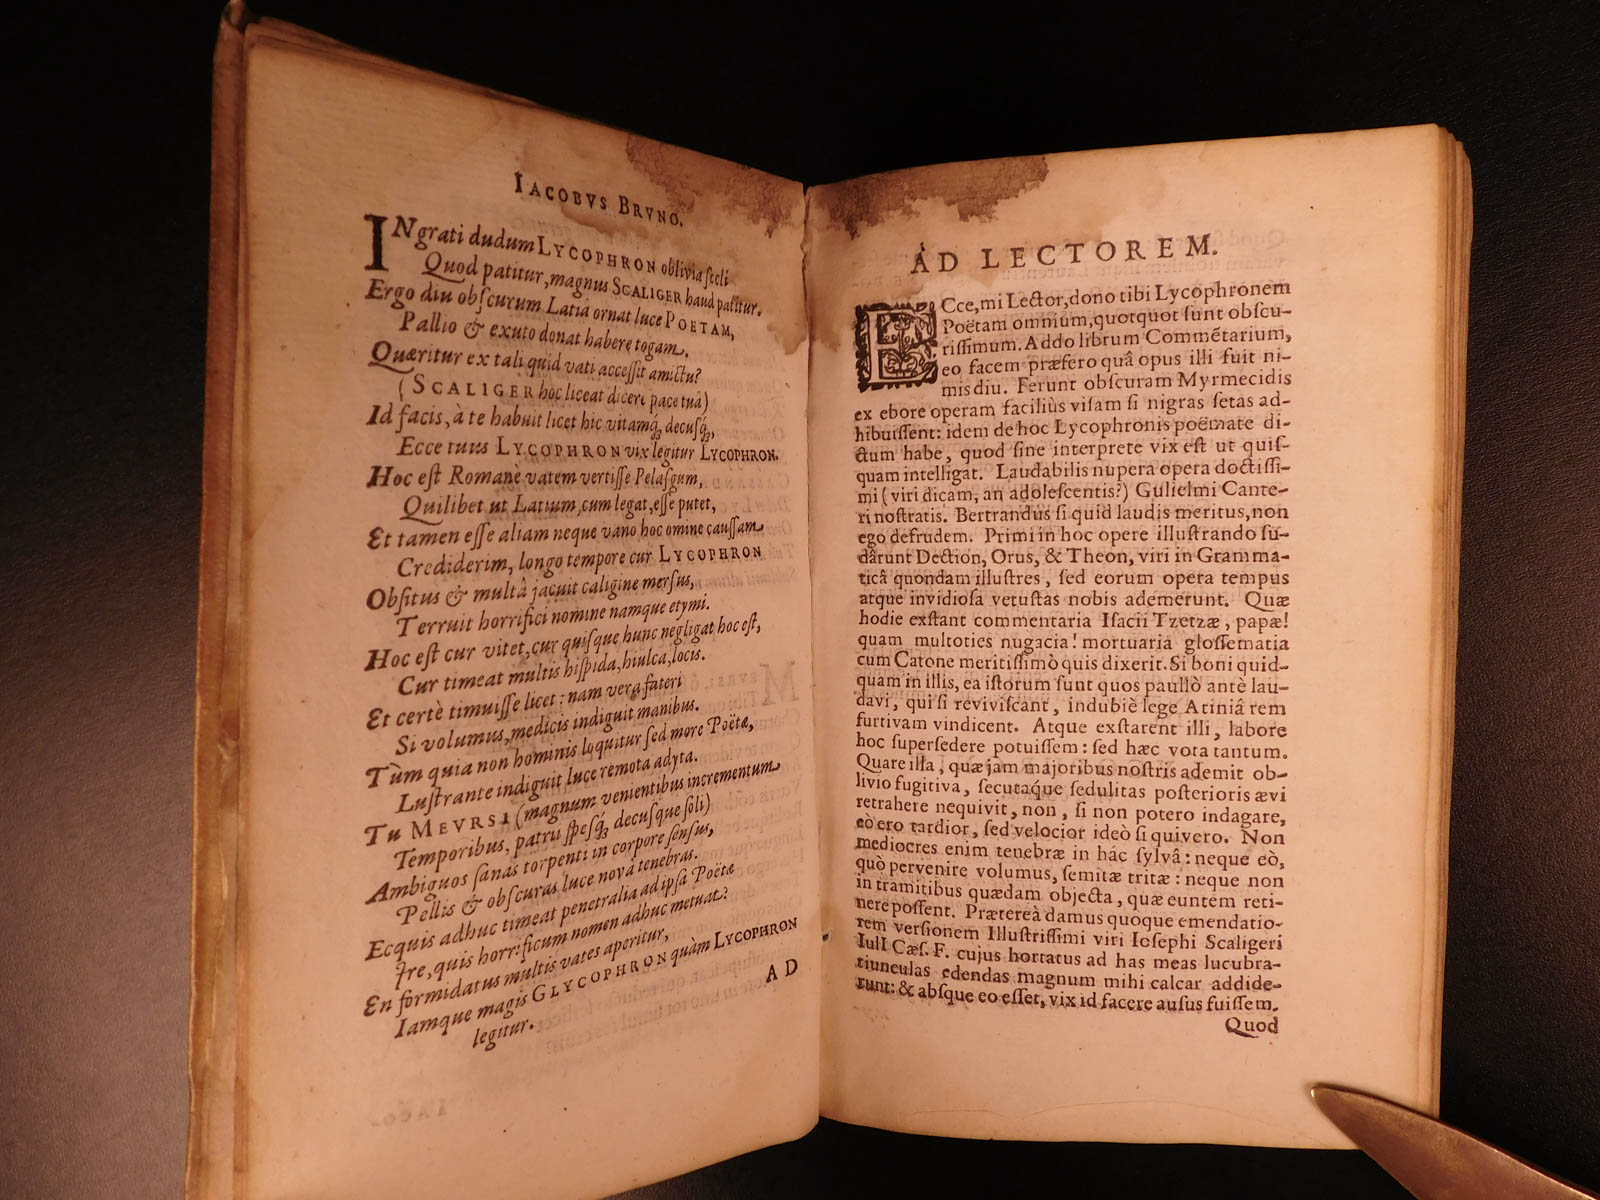 IACOBVS BRVNO.
INgrati dudum LYCOPHRON oblivia secli
Quod patitur, magnus SCALIGER haud patitur.
Ergo diu obscurum Latiâ ornat luce POETAM,
Pallio & exuto donat habere togam.
Quæritur ex tali quid vati accessit amictu?
(SCALIGER hoc liceat dicere pace tuâ)
Id facis, à te habuit licet hic vitamq́; decusq́;,
Ecce tuus LYCOPHRON vix legitur LYCOPHRON.
Hoc est Romanè vatem vertisse Pelasgum,
Quilibet ut Latium, cum legat, esse putet,
Et tamen esse aliam neque vano hoc omine caussam
Crediderim, longo tempore cur LYCOPHRON
Obsitus & multâ jacuit caligine mersus,
Terruit horrifici nomine namque etymi.
Hoc est cur vitet, cur quisque hunc negligat hoc est,
Cur timeat multis hispida, hiulca, locis.
Et certè timuisse licet: nam vera fateri
Si volumus, medicis indiguit manibus.
Tùm quia non hominis loquitur sed more Poëtæ,
Lustrante indiguit luce remota adyta.
Tu MEVRSI (magnum venientibus incrementum
Temporibus, patru spesq́; decusque soli)
Ambiguos sanas torpenti in corpore sensus,
Pellis & obscuras luce novâ tenebras.
Ecquis adhuc timeat penetralia ad ipsa Poëtæ
Ire, quis horrificum nomen adhuc metuat?
En formidatus multis vates aperitur,
Iamque magis GLYCOPHRON quàm LYCOPHRON
legitur.
AD
AD LECTOREM.
ECce, mi Lector, dono tibi Lycophronem
Poëtam omnium, quotquot sunt obscu-
rissimum. Addo librum Commẽtarium,
eo facem præfero quâ opus illi fuit ni-
mis diu. Ferunt obscuram Myrmecidis
ex ebore operam facilius visam si nigras setas ad-
hibuissent: idem de hoc Lycophronis poëmate di-
ctum habe, quod sine interprete vix est ut quis-
quam intelligat. Laudabilis nupera opera doctissi-
mi (viri dicam, an adolescentis?) Gulielmi Cante-
ri nostratis. Bertrandus si quid laudis meritus, non
ego defrudem. Primi in hoc opere illustrando su-
dârunt Dection, Orus, & Theon, viri in Gramma-
ticâ quondam illustres, sed eorum opera tempus
atque invidiosa vetustas nobis ademerunt. Quæ
hodie exstant commentaria Isacii Tzetzæ, papæ!
quam multoties nugacia! mortuaria glossematia
cum Catone meritissimò quis dixerit. Si boni quid-
quam in illis, ea istorum sunt quos paullò antè lau-
davi, qui si reviviscant, indubiè lege Atiniâ rem
furtivam vindicent. Atque exstarent illi, labore
hoc supersedere potuissem: sed hæc vota tantum.
Quare illa, quæ jam majoribus nostris ademit ob-
livio fugitiva, secutaque sedulitas posterioris ævi
retrahere nequivit, non, si non potero indagare,
eò ero tardior, sed velocior ideò si quivero. Non
mediocres enim tenebræ in hác sylvâ: neque eò,
quò pervenire volumus, semitæ tritæ: neque non
in tramitibus quædam objecta, quæ euntem reti-
nere possent. Prætereà damus quoque emendatio-
rem versionem Illustrissimi viri Iosephi Scaligeri
Iull Cæs. F. cujus hortatus ad has meas lucubra-
tiunculas edendas magnum mihi calcar addide-
runt: & absque eo esset, vix id facere ausus fuissem.
Quod